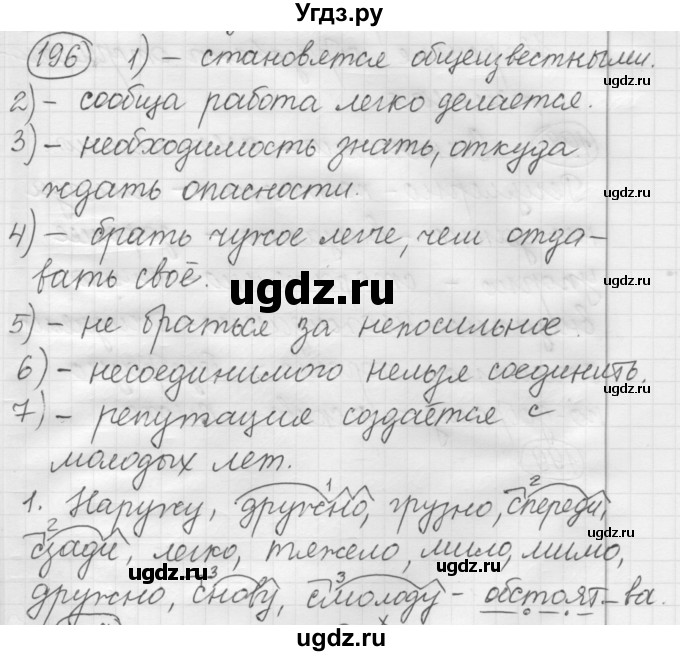 Угдз.ру
196 1) – становятся общеизвестными.
ugdz.ru
2) – сообща работа легко делается.
ugdz.ru
3) – необходимость знать, откуда
ждать опасности.
ugdz.ru
4) – брать чужое легче, чем отда-
вать своё.
ugdz.ru
ugdz.ru
5) – не браться за непосильное.
6) – несоединимого нельзя соединить.
ugdz.ru
7) – репутация создаётся с
ugdz.ru
молодых лет.
1 2
1. Наружу, дружно, грузно, спереди,
2
сзади, легко, тяжело, мило, мимо,
ugdz.ru
ugdz.ru
3 3
дружно, снову, смолоду – обстоят-ва.
ugdz.ru